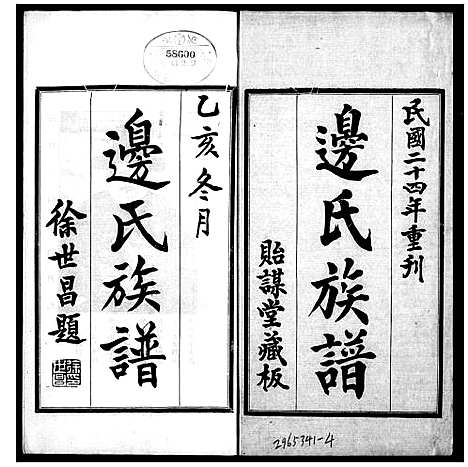 民國二十四年重刊
邊氏族譜
貽謀堂藏板
乙亥冬月
邊氏族譜
徐世昌題
58600
2965341-4